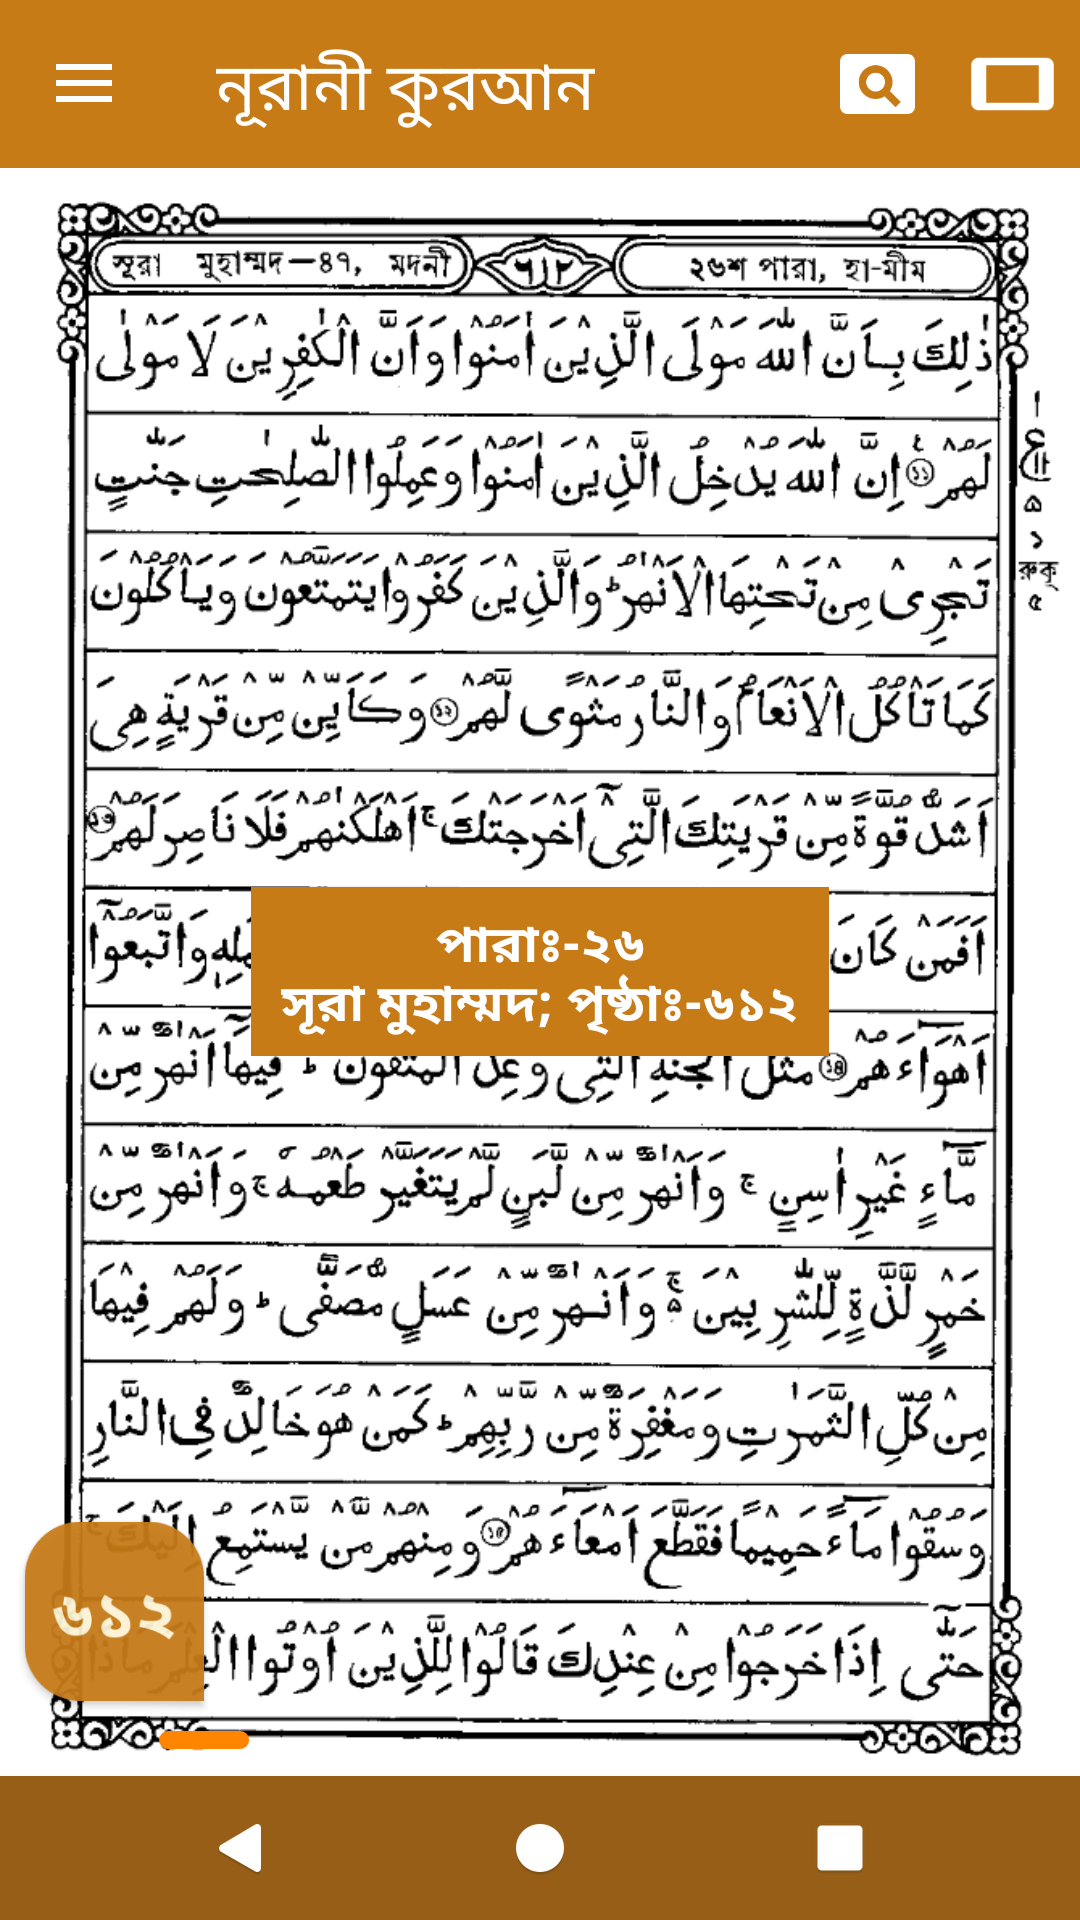 নূরানী কুরআন
সূরা মুহাম্মদ—৪৭, মদনী
৬১২
২৬শ পারা, হা-মীম
ذٰلِكَ بِاَنَّ اللّٰهَ مَوْلَى الَّذِيْنَ اٰمَنُوْا وَاَنَّ الْكٰفِرِيْنَ لَا مَوْلٰى
لَهُمْ ۝১১ اِنَّ اللّٰهَ يُدْخِلُ الَّذِيْنَ اٰمَنُوْا وَعَمِلُوا الصّٰلِحٰتِ جَنّٰتٍ
ع
১১
৫
১
রুকূ
৫
تَجْرِىْ مِنْ تَحْتِهَا الْاَنْهٰرُ ؕ وَالَّذِيْنَ كَفَرُوْا يَتَمَتَّعُوْنَ وَيَاْكُلُوْنَ
كَمَا تَاْكُلُ الْاَنْعَامُ وَالنَّارُ مَثْوًى لَّهُمْ ۝১২ وَكَاَيِّنْ مِّنْ قَرْيَةٍ هِىَ
اَشَدُّ قُوَّةً مِّنْ قَرْيَتِكَ الَّتِىْٓ اَخْرَجَتْكَ ۚ اَهْلَكْنٰهُمْ فَلَا نَاصِرَ لَهُمْ ۝১৩
اَفَمَنْ كَانَ
وَاتَّبَعُوْٓا
পারাঃ-২৬
সূরা মুহাম্মদ; পৃষ্ঠাঃ-৬১২
اَهْوَآءَهُمْ ۝১৪ مَثَلُ الْجَنَّةِ الَّتِىْ وُعِدَ الْمُتَّقُوْنَ ؕ فِيْهَآ اَنْهٰرٌ مِّنْ
مَّآءٍ غَيْرِ اٰسِنٍ ۚ وَاَنْهٰرٌ مِّنْ لَّبَنٍ لَّمْ يَتَغَيَّرْ طَعْمُهٗ ۚ وَاَنْهٰرٌ مِّنْ
خَمْرٍ لَّذَّةٍ لِّلشّٰرِبِيْنَ ۚ۬ وَاَنْهٰرٌ مِّنْ عَسَلٍ مُّصَفًّى ؕ وَلَهُمْ فِيْهَا
مِنْ كُلِّ الثَّمَرٰتِ وَمَغْفِرَةٌ مِّنْ رَّبِّهِمْ ؕ كَمَنْ هُوَ خَالِدٌ فِى النَّارِ
وَسُقُوْا مَآءً حَمِيْمًا فَقَطَّعَ اَمْعَآءَهُمْ ۝১৫ وَمِنْهُمْ مَّنْ يَّسْتَمِعُ اِلَيْكَ ۚ
حَتّٰٓى اِذَا خَرَجُوْا مِنْ عِنْدِكَ قَالُوْا لِلَّذِيْنَ اُوْتُوا الْعِلْمَ مَاذَا
৬১২